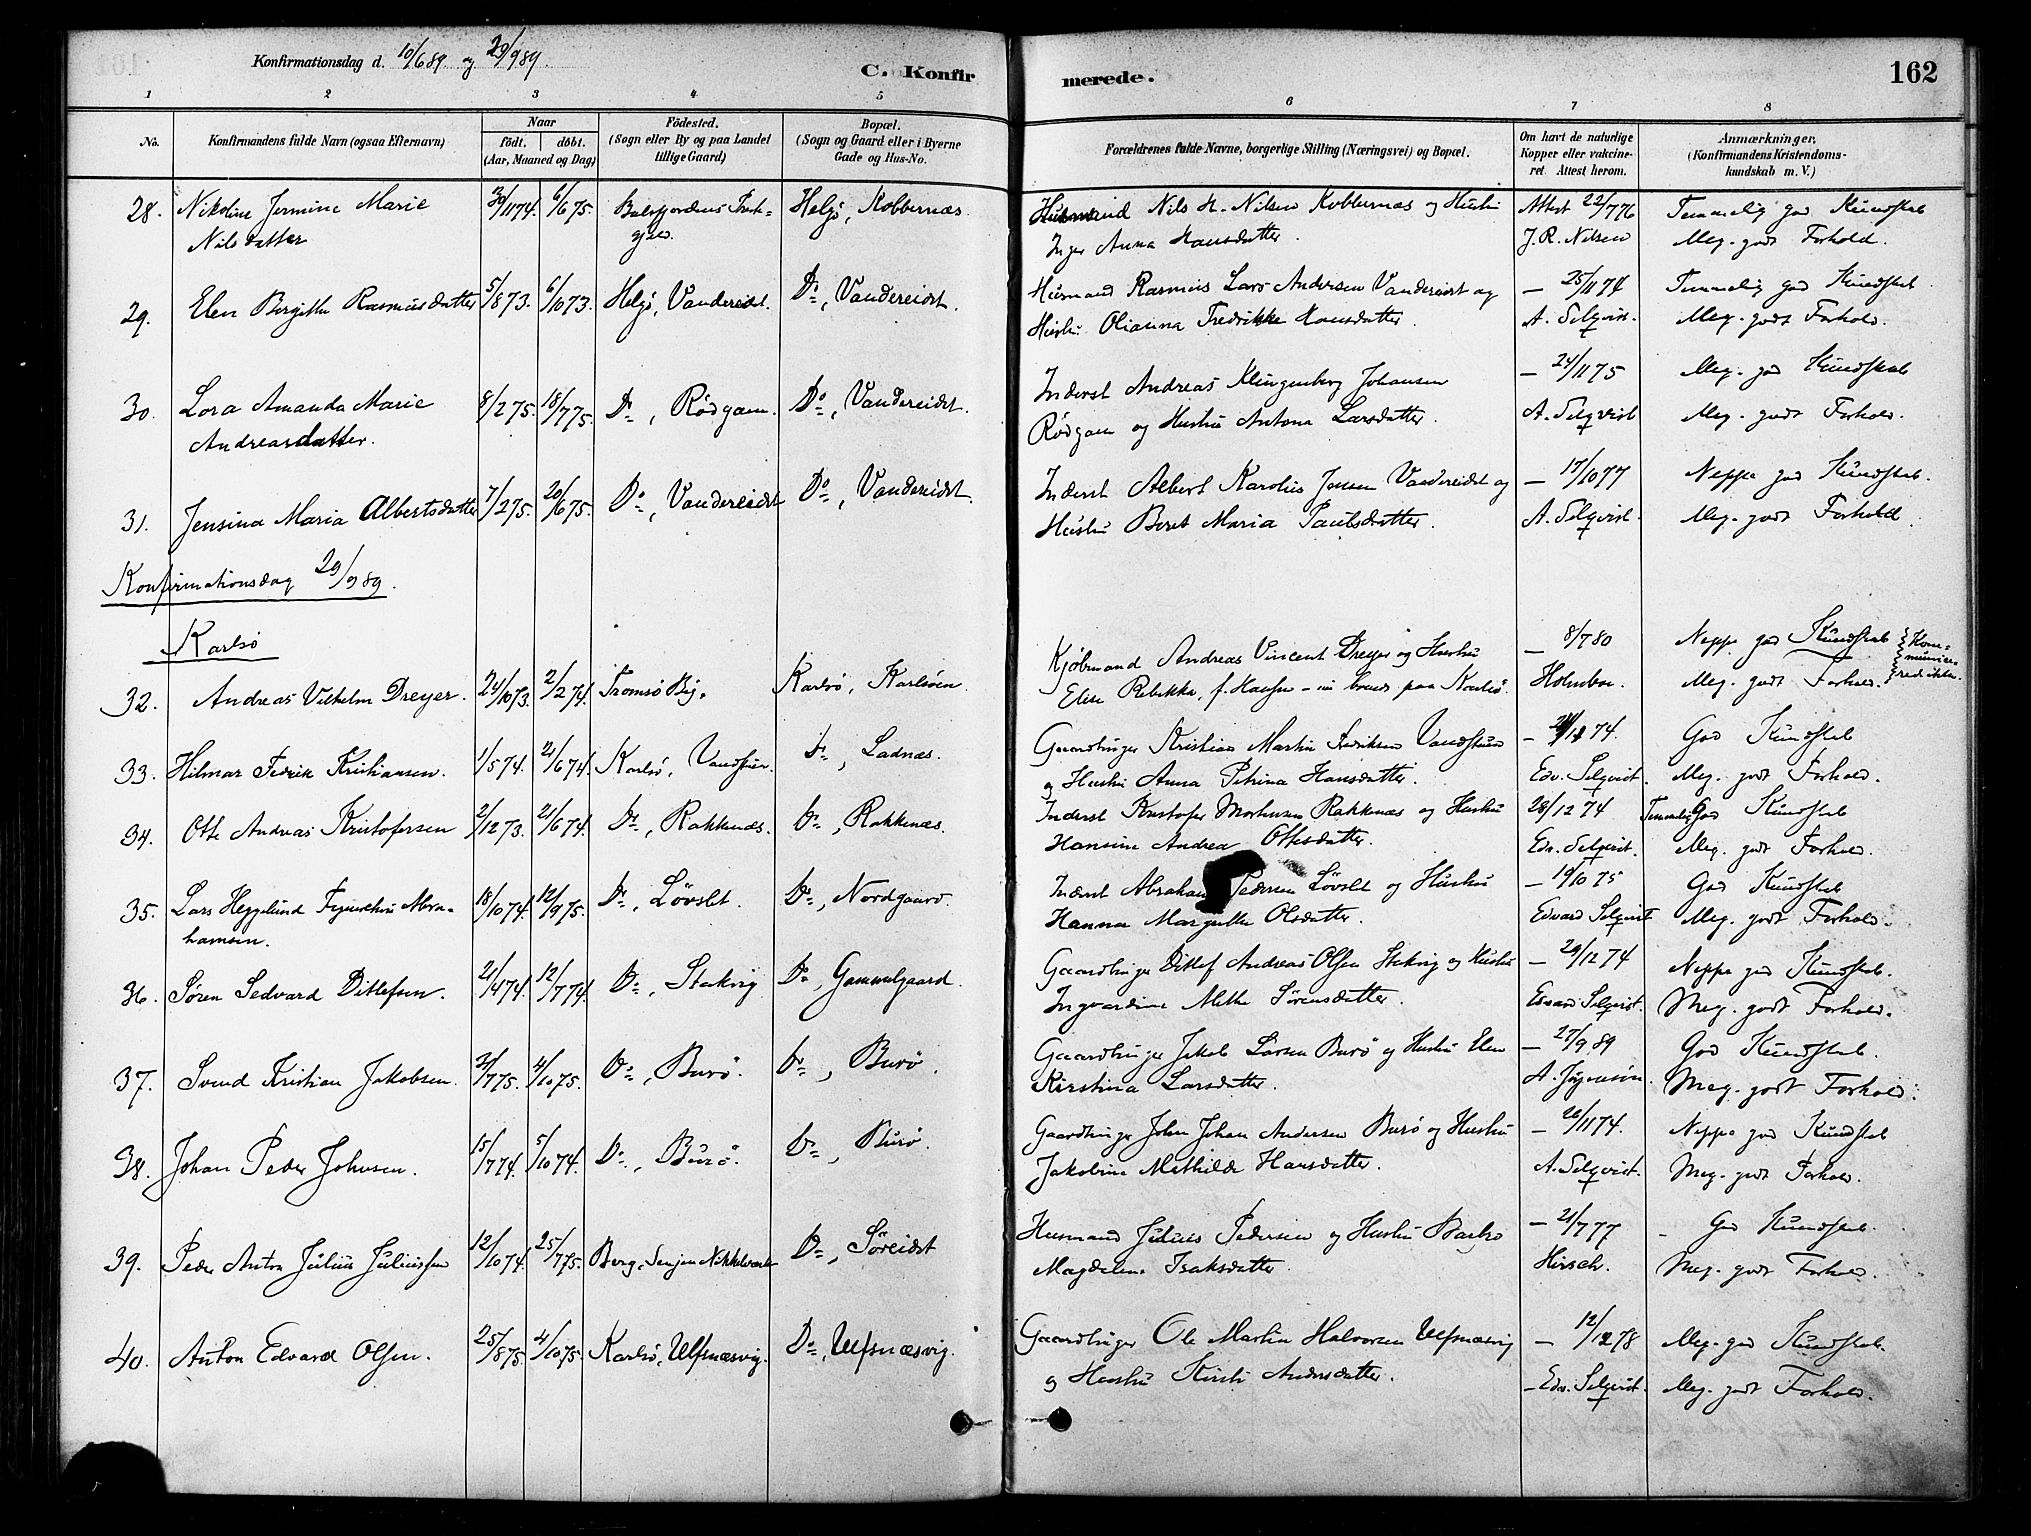 Konfirmationsdag d. 10/6 89. og 29/9 89.
C. Konfirmerede.
162
1 2 3 4 5 6 7 8
No.
Konfirmandens fulde Navn (ogsaa Efternavn)
Naar
födt. döbt.
(Aar, Maaned og Dag)
Födested.
(Sogn eller By og paa Landet
tillige Gaard)
Bopæl.
(Sogn og Gaard eller i Byerne
Gade og Hus-No.
Forældrenes fulde Navne, borgerlige Stilling (Næringsvei) og Bopæl.
Om havt de naturlige
Kopper eller vakcine-
ret. Attest herom.
Anmærkninger,
(Konfirmandens Kristendoms-
kundskab m. V.)
28. Nikoline Jermine Marie 30/11 74. 6/6 75. Balsfjordens Præste- Helgø, Kobbernæs. Husmand Nils H. Nilsen Kobbernæs og Hustru Attest 22/7 76 Temmelig god Kundskab
Nilsdatter gjeld. Inger Anna Hansdatter. J. R. Nilsen Meg. godt Forhold.
29. Elen Birgitte Rasmusdatter 5/8 73. 6/10 73. Helgø, Vandereidet. Do, Vandereidet. Husmand Rasmus Lars Andersen Vandereidet og — 25/11 74 Temmelig god Kundskab
Hustru Olianna Fredrikke Hansdatter. A. Selqvist. Meg. godt Forhold.
30. Lora Amanda Marie 8/2 75. 18/7 75. Do, Rödgam. Do, Vandereidet. Inderst Andreas Klingenberg Johansen — 24/11 75 Meg. god Kundskab
Andreasdatter. Rödgam og Hustru Antona Larsdatter. A. Selqvist Meg. godt Forhold.
31. Jensina Maria Albertsdatter 7/2 75. 20/6 75. Do, Vandereidet Do, Vandereidet. Inderst Albert Karolius Jensen Vandereidet og — 17/10 77 Neppe god Kundskab.
Hustru Beret Maria Paulsdatter. A. Selqvist. Meg. godt Forhold.
Konfirmationsdag 29/9 89.
Karlsø
32. Andreas Vilhelm Dreyer. 24/10 73. 2/2 74. Tromsö By. Karlsö, Karlsöen. Kjöbmand Andreas Vincent Dreyer og Hustru — 8/7 80 Neppe god Kundskab
Elise Rebekka, f. Hansen - nu boende paa Karlsö. Holmboe. Meg. godt Forhold.
33. Hilmar Fedrik Kristiansen. 1/5 74. 21/6 74. Karlsö, Vandstun. Do, Ladnæs. Gaardbruger Kristian Martin Fedriksen Vandstun — 74. God Kundskab
og Hustru Anna Petrina Hansdatter. Edv. Selqvist. Meg. godt Forhold.
34. Otto Andreas Kristofersen 2/12 73. 21/6 74. Do, Rakkenæs. Do, Rakkenæs. Inderst Kristofer Mortensen Rakkenæs og Hustru 28/12 74 Temmelig God Kundskab
Hansine Andrea Ottesdatter. Edv. Selqvist. Meg. godt Forhold.
35. Lars Heggelund Abra- 18/10 74. 12/9 75. Do, Lövslet. Do, Nordgaard. Inderst Abraham Pedersen Lövslet og Hustru — 19/10 75 God Kundskab
hamsen. Hanna Margrethe Olsdatter. Edvard Selqvist Meg. godt Forhold.
36. Sören Sedvard Ditlefsen. 21/4 74. 12/7 74. Do, Stakvig Do, Gammelgaard. Gaardbruger Ditlef Andreas Olsen Stakvig og Hustru — 29/12 74 Neppe god Kundskab.
Ingvardine Mette Sörensdatter. Edvard Selqvist. Meg. godt Forhold.
37. Svend Kristian Jakobsen. 31/7 75. 4/10 75. Do, Burö. Do, Burö. Gaardbruger Jakob Larsen Burö og Hustru Elen — 27/9 89 God Kundskab.
Kirstina Larsdatter. A. Jörgensen. Meg. godt Forhold.
38. Johan Peder Johnsen. 15/7 74. 5/10 74. Do, Burö. Do, Burö. Gaardbruger John Johan Andersen Burö og Hustru — 26/11 74. Neppe god Kundskab
Jakobine Mathilde Hansdatter. A. Selqvist. Meg. godt Forhold.
39. Peder Anton Julius Juliussen 12/10 74. 25/7 75. Berg, Senjen Nikkelværk Do, Söreidet Husmand Julius Pedersen og Hustru Barbro — 21/7 77 God Kundskab.
Magdalena Isaksdatter. Hirsch. Meg. godt Forhold.
40. Anton Edvard Olsen. 25/8 75. 4/10 75. Karlsö, Ulfsnæsvig. Do, Ulfsnæsvig. Gaardbruger Ole Martin Halvorsen Ulfsnæsvig — 12/12 78 Meg. god Kundskab.
og Hustru Kirsti Andersdatter. — Edv. Selqvist. Meg. godt Forhold.